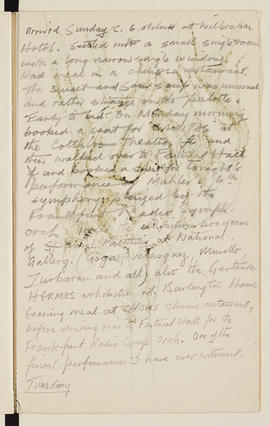 Arrived Sunday c. 6. o'clock at Wilbraham
Hotel. Settled into a small single room
with a long narrow single window.
Had meal in a chinese restaurant.
The sweet and sour soup was unusual
and rather strange on the palate.
Early to bed. On Monday morning
booked a seat for
the Theatre and
then walked over to Festival Hall
and booked a seat for tonight's
performance of Mahler's 6th
symphony played by the
Frankfurt Radio Symph
orch. to exhibition 200 years
of Spanish Painting at National
Gallery. (Goya, Velasquez, Murillo
Zurbaran and all) also the
HERMES exhibition at Burlington House
Evening meal at CHOYS Chinese restaurant,
before driving over to Festival Hall for the
Frankfurt Radio Symph Orch. One of the
finest performances I have ever witnessed.
Tuesday